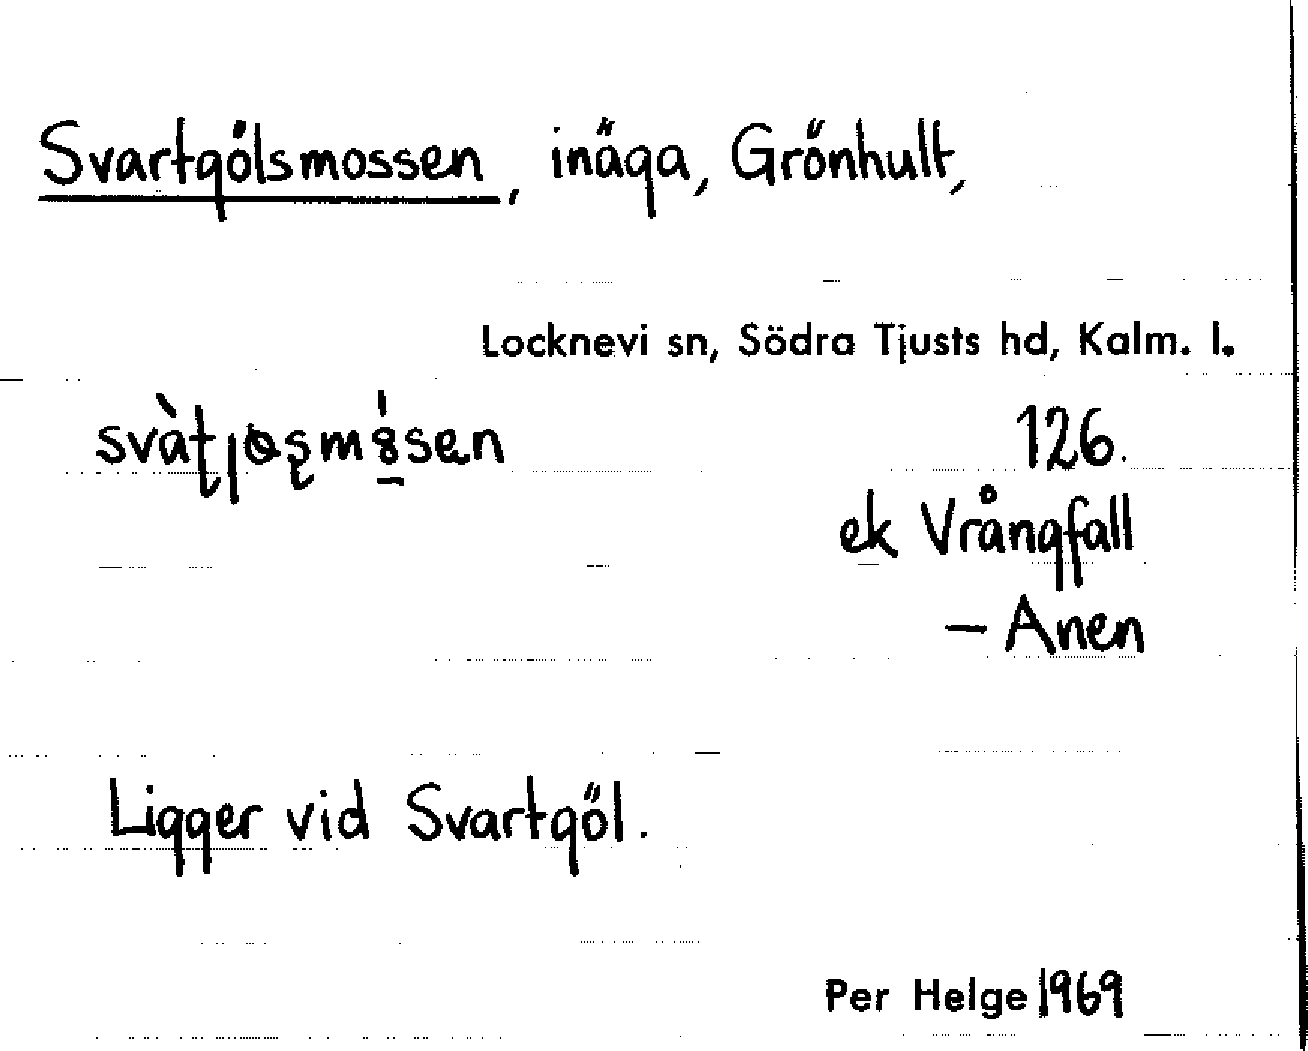 Svartgölsmossen, inäga, Grönhult,
Locknevi sn, Södra Tjusts hd, Kalm. l.
126.
ek Vrångfall
– Anen
Ligger vid Svartgöl.
Per Helge 1969